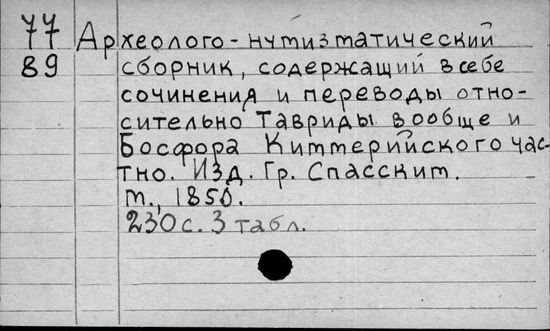 77 Археолого-нумизматический
89 сборник, содержащий в себе
сочинения и переводы отно-
сительно Тавриды вообще и
Босфора Киммерийского час-
тно. Изд. Гр. Спасским.
М., 1850.
230 с. 3 табл.